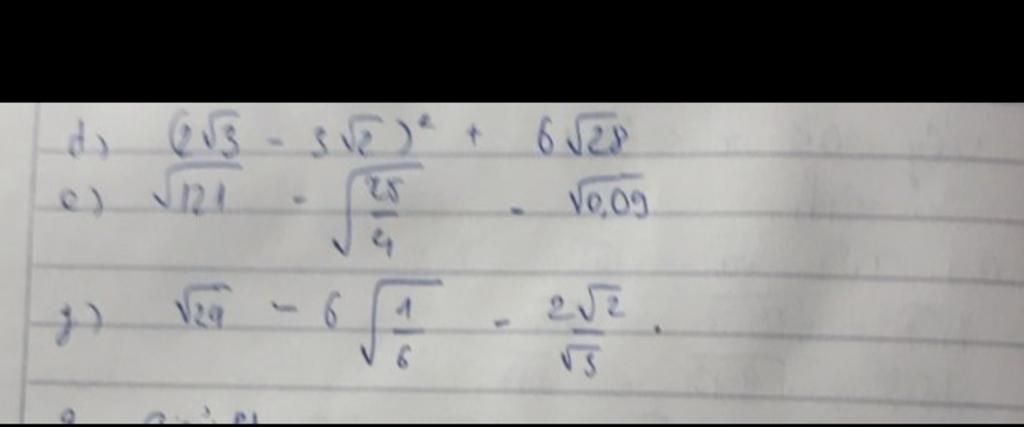 d) (2√3 - 3√2)² + 6√28
e) √121 - √(25/4) - √0,09
g) √24 - 6√(1/6) - 2√2/√3 .